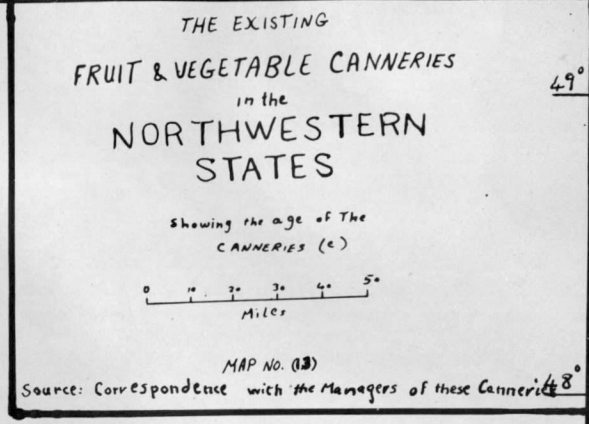 THE EXISTING
FRUIT & VEGETABLE CANNERIES
in the
NORTHWESTERN
STATES
49°
Showing the age of The
CANNERIES (e)
0 10 20 30 40 50
Miles
MAP NO. (13)
48°
Source: Correspondence with the Managers of these Canneries